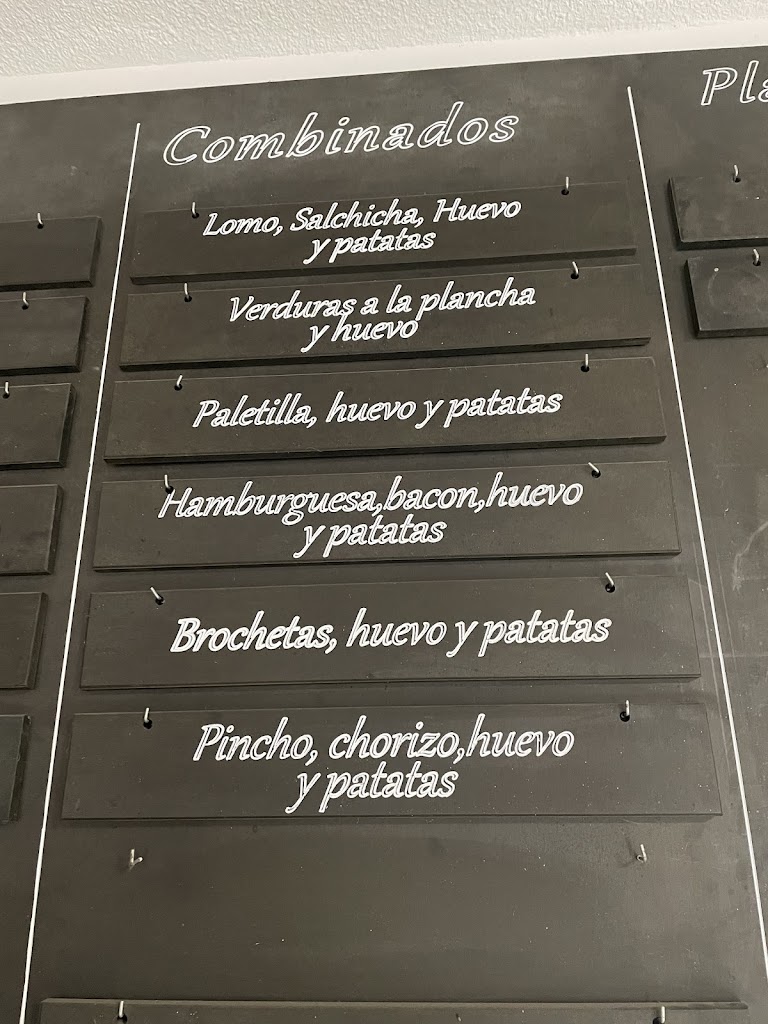 Combinados
Lomo, Salchicha, Huevo
y patatas
Verduras a la plancha
y huevo
Paletilla, huevo y patatas
Hamburguesa,bacon,huevo
y patatas
Brochetas, huevo y patatas
Pincho, chorizo,huevo
y patatas